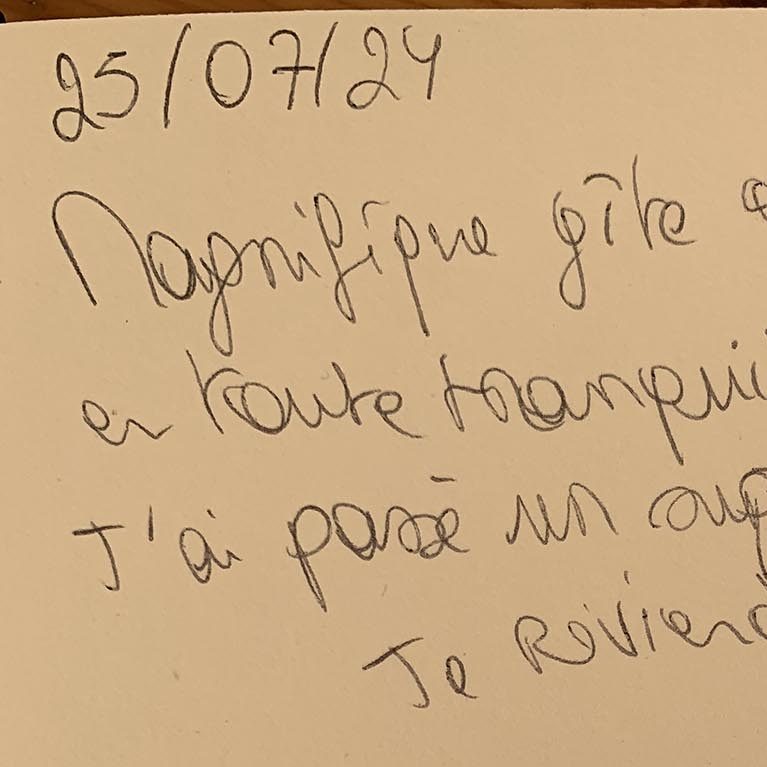 25/07/24
Magnifique gîte
en toute tranqui
J'ai passé un sup
Je Reviend